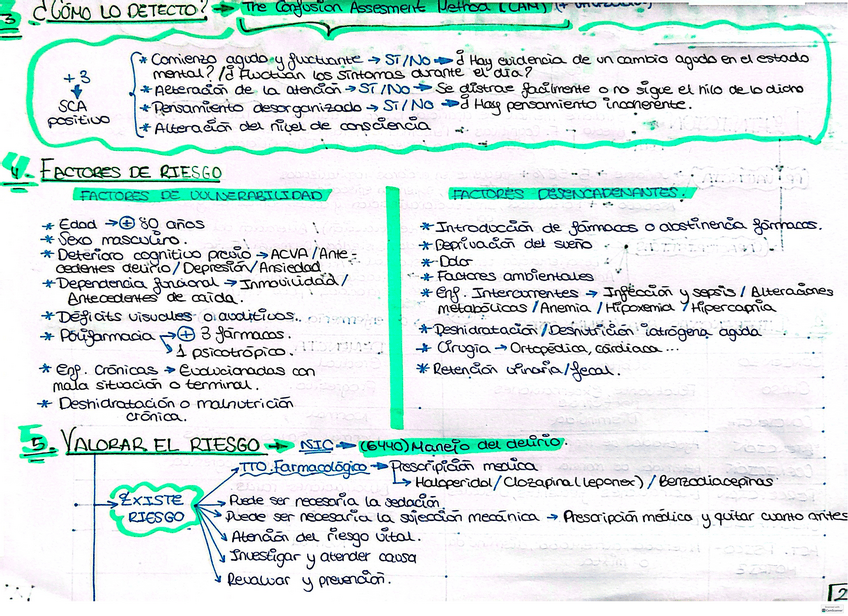 3 ¿CÓMO LO DETECTO? → The Confusion Assesment Method (CAM)
+3
↓
SCA
positivo
* Comienzo agudo y fluctuante → SI/NO → ¿Hay evidencia de un cambio agudo en el estado
mental? / ¿Fluctúan los síntomas durante el día?
* Alteración de la atención → SI/NO → Se distrae facilmente o no sigue el hilo de lo dicho
* Pensamiento desorganizado → SI/NO → ¿Hay pensamiento incoherente.
* Alteración del nivel de consciencia
4. FACTORES DE RIESGO
FACTORES DE VULNERABILIDAD
* Edad → + 80 años
* Sexo masculino.
* Deterioro cognitivo previo → ACVA / Ante-
cedentes delirio / Depresión / Ansiedad
* Dependencia funcional → Inmovilidad /
Antecedentes de caída.
* Déficits visuales o auditivos..
* Polifarmacia → + 3 fármacos.
↘ 1 psicotrópico.
* Enf. Crónicas → Evolucionadas con
mala situación o terminal.
* Deshidratación o malnutrición
crónica.
FACTORES DESENCADENANTES.
* Introducción de fármacos o abstinencia fármacos.
* Deprivación del sueño
* Dolor
* Factores ambientales
* Enf. Intercurrentes → Infección y sepsis / Alteraciones
metabólicas / Anemia / Hipoxemia / Hipercapnia
* Deshidratación / Desnutrición iatrógena aguda
* Cirugía → Ortopédica, cardiaca...
* Retención urinaria / fecal.
5. VALORAR EL RIESGO → NIC → (6440) Manejo del delirio.
EXISTE
RIESGO
TTO. Farmacológico → Prescripción medica
↳ Haloperidol / Clozapina (leponex) / Benzodiacepinas
Puede ser necesaria la sedación
Puede ser necesaria la sujección mecánica → Prescripción médica y quitar cuanto antes
Atención del riesgo vital.
Investigar y atender causa
Revaluar y prevención.
2